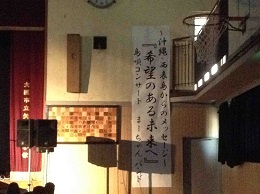 ～沖縄 西表島からのメッセージ～
『希望のある未来へ』
島唄コンサート まーちゃんバンド
大阪市立